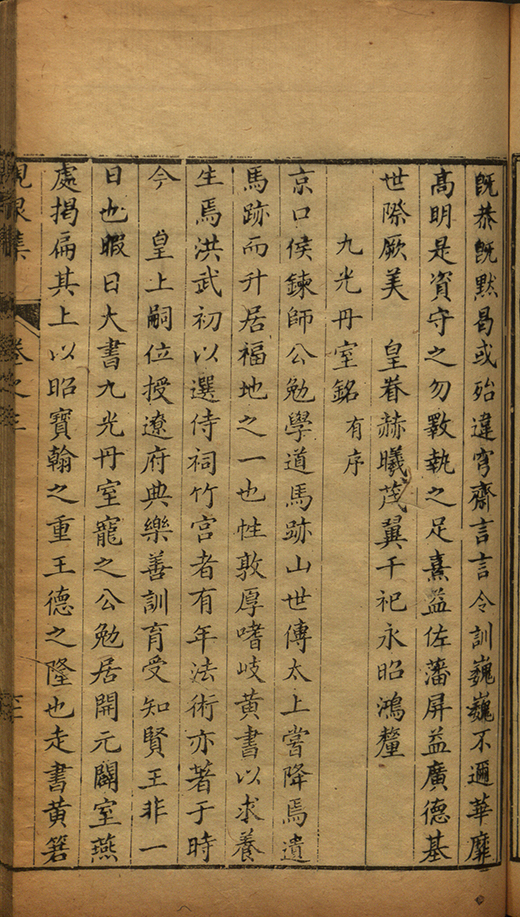 既恭既默曷或殆違穹齋言言令訓巍巍不邇華靡
高明是資守之勿斁執之足熹益佐藩屏益廣德基
世際厥美　皇眷赫曦茂冀千祀永昭鴻釐
九光丹室銘有序
京口侯鍊師公勉學道馬跡山世傳太上嘗降焉遺
馬跡而升居福地之一也性敦厚嗜岐黃書以求養
生焉洪武初以選侍祠竹宮者有年法術亦著于時
今　皇上嗣位授遼府典樂善訓育受知賢王非一
日也暇日大書九光丹室寵之公勉居開元闢室燕
處揭扁其上以昭寶翰之重王德之隆也走書黃箬
峴泉集　卷之三